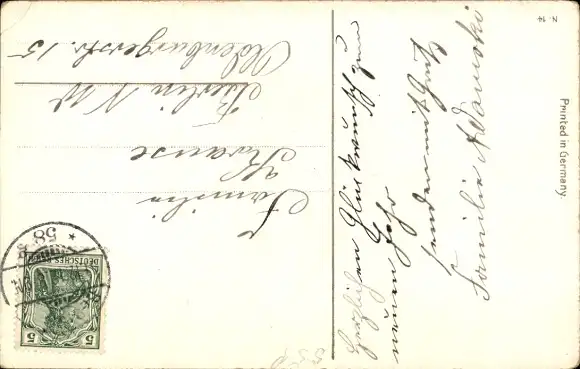 Herzlichen Glückwunsch zum
neuen Jahr
sendet mit Gruß
Familie Adamski
Familie
Krause
Berlin N W
Oldenburgerstr. 15
DEUTSCHES REICH
5
5
58
Printed in Germany.
N. 14